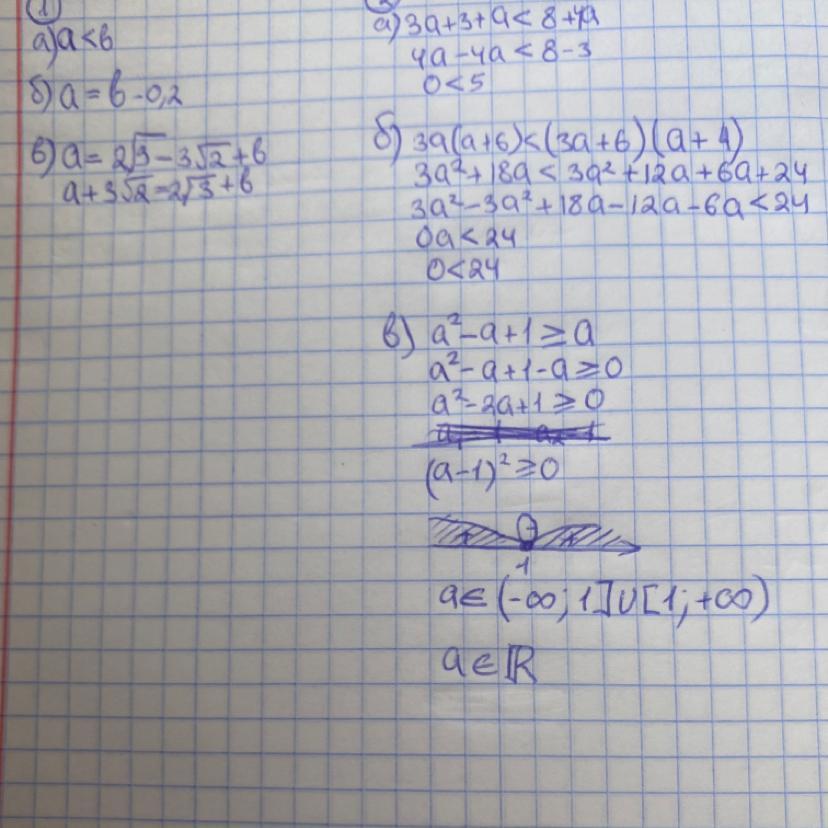 1
а) a < b
б) a = b - 0,2
в) a = 2√3 - 3√2 + b
a + 3√2 = 2√3 + b
а) 3a + 3 + a < 8 + 4a
4a - 4a < 8 - 3
0 < 5
б) 3a(a+6) < (3a+6)(a+4)
3a² + 18a < 3a² + 12a + 6a + 24
3a² - 3a² + 18a - 12a - 6a < 24
0a < 24
0 < 24
в) a² - a + 1 ≥ a
a² - a + 1 - a ≥ 0
a² - 2a + 1 ≥ 0
(a-1)² ≥ 0
1
a ∈ (-∞; 1] ∪ [1; +∞)
a ∈ ℝ